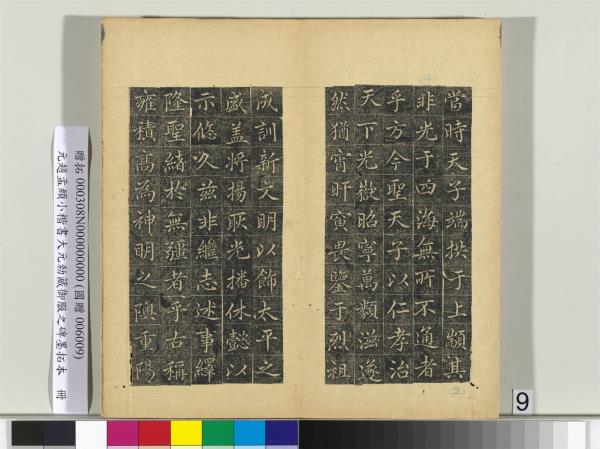 當時天子端拱于上顒其
非光于四海無所不通者
乎方今聖天子以仁孝治
天下光嶽昭寧萬類滋遂
然猶宵旰寅畏鑒于烈祖
成訓新文明以飾太平之
盛盖將揚耿光播休懿以
示悠久茲非繼志述事繹
隆聖緒於無疆者乎古稱
雍積高為神明之隩重陽
贈拓 000308N000000000 (國贈 006009)
元趙孟頫小楷書大元勑藏御服之碑墨拓本 冊
9